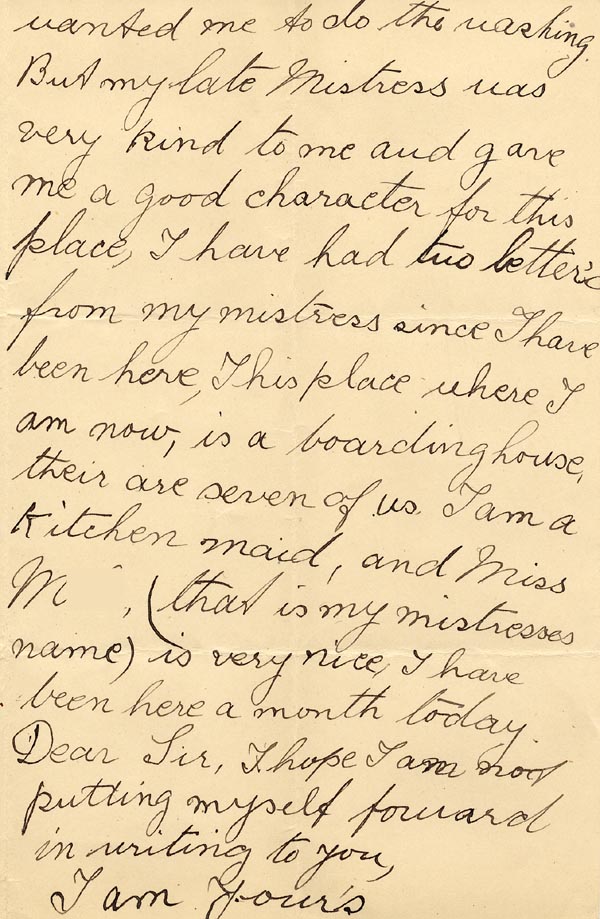 wanted me to do the washing.
But my late Mistress was
very kind to me and gave
me a good character for this
place, I have had two letter's
from my mistress since I have
been here, This place where I
am now, is a boardinghouse,
their are seven of us I am a
Kitchen maid, and Miss
M , (that is my mistresses
name) is very nice, I have
been here a month today.
Dear Sir, I hope I am not
putting myself forward
in writing to you,
I am Your's